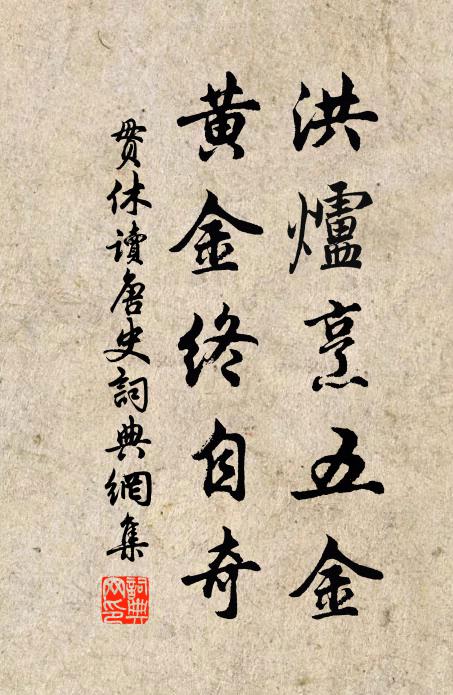 洪爐烹五金
黃金終自奇
貫休讀唐史詞典網集
詞典網印